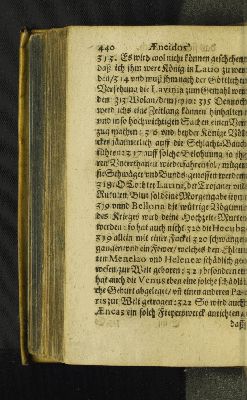 440 Æneidos
313. Es wird wol nicht können geschehen
daß ich ihm were König in Latio zu wer-
den/314 und muß ihm nach der Göttlichen
Versehung die Lavinia zum Gemahl wer-
den 313. Wolan/dem sey so: 315 Dennoch
werd ichs eine Zeitlang können hinhalten
und in so hochwichtigen Sachen einen Ver-
zug machen: 316 und beyder Könige Völ-
cker jämmerlich auff die Schlacht-Banck
führen: 317 auff solche Belohnung so ihrer
Unterthanen niederfahren sol/ mügen
sie Schwäger und Bunds-genossen werden
318. O Tochter Latini, der Trojaner und
Rutuler Blut sol deine Morgengabe seyn/
319 und Bellona die wütige Göttinne
des Krieges wird deine Hochzeit-Mutter
werden: so hat auch nicht 320 die Hecuba
319 allein mit einer Fackel 320 schwanger
gangen/und ein Fewer/ welches den Ehleu-
ten Menelao und Helenæ schädlich ge-
wesen/zur Welt geboren: 321 besondern es
hat auch die Venus eben eine solche schädli-
che Geburt abgeleget/ uñ einen andern Pa-
ris zur Welt getragen: 322 So wird auch
Æneas ein solch Fewerswerck anrichten/
daß